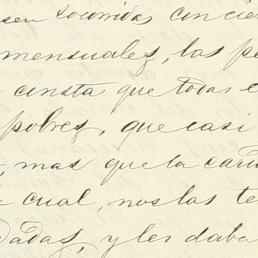 sen socorridas con cie
mensuales, las pe
consta que todas e
pobres, que casi
, mas que la cari
cual, nos las te
dadas, y les daba